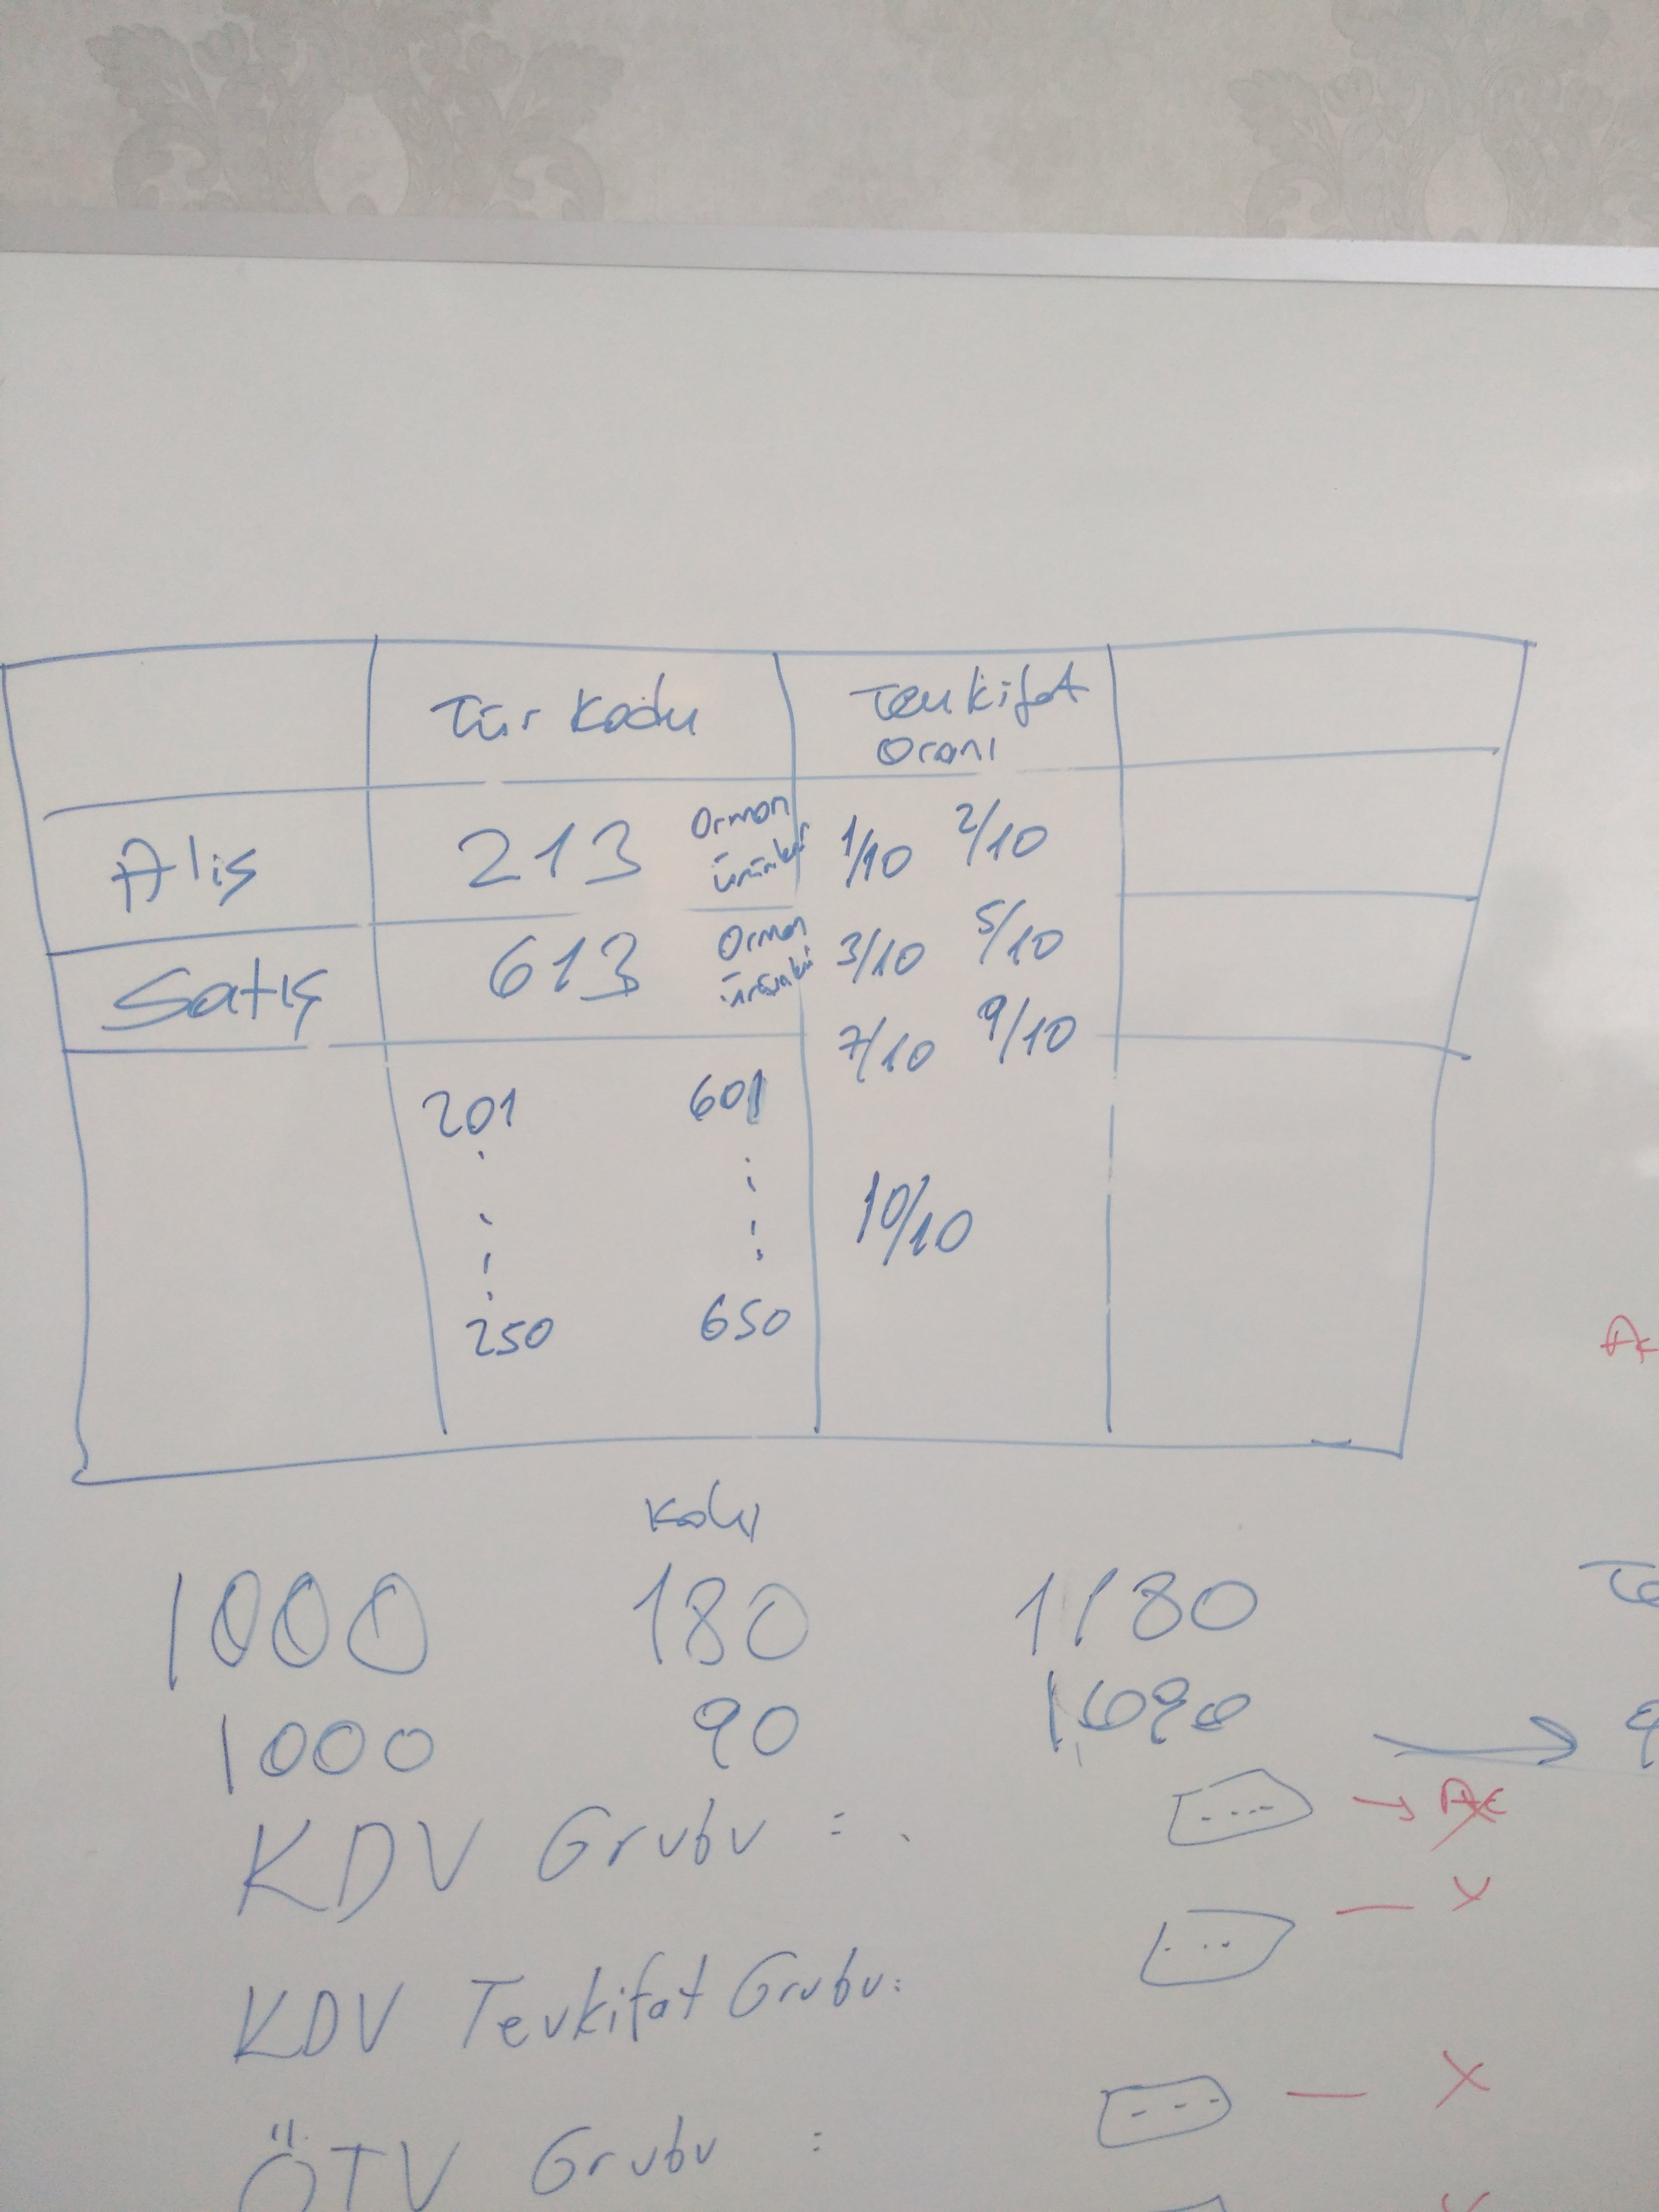 Tür Kodu
Tevkifat
Oranı
Alış 213 Orman
ürünleri
1/10 2/10
Satış 613 Orman
3/10 5/10
7/10 9/10
201 601
10/10
250 650
1000 180 1180
1000 90 1090
KDV Grubu :
KDV Tevkifat Grubu:
ÖTV Grubu :
X
X